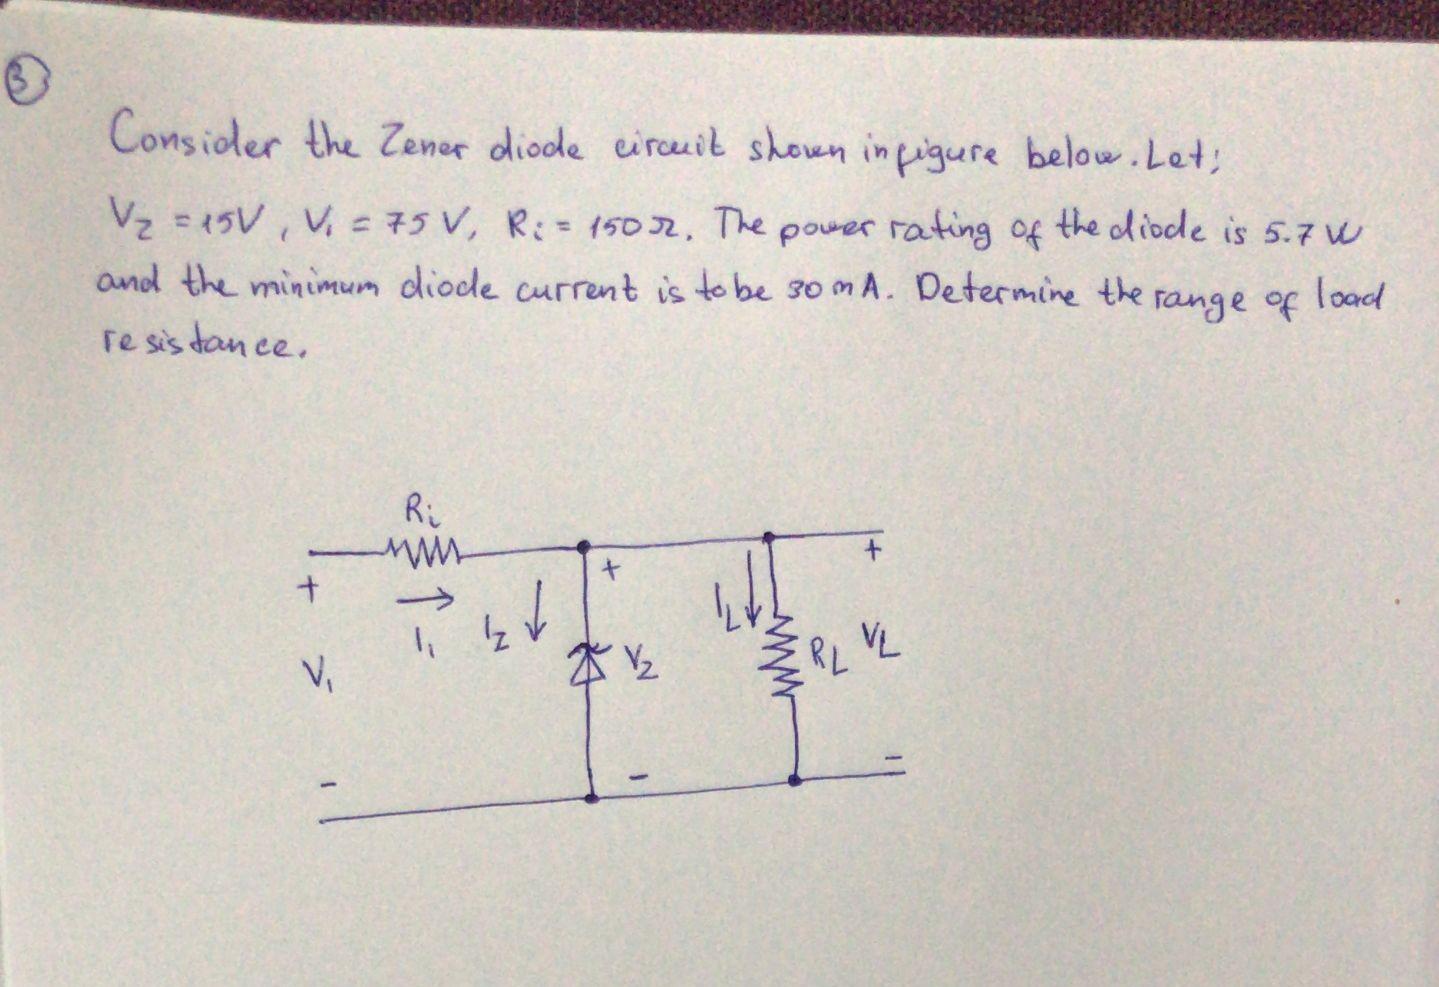 3
Consider the Zener diode circuit shown in figure below. Let;
VZ = 15V, V1 = 75 V, Ri = 150Ω. The power rating of the diode is 5.7 W
and the minimum diode current is to be 30 mA. Determine the range of load
resistance.
Ri
+ + +
I1 IZ IL
V1 VZ RL VL
- - -